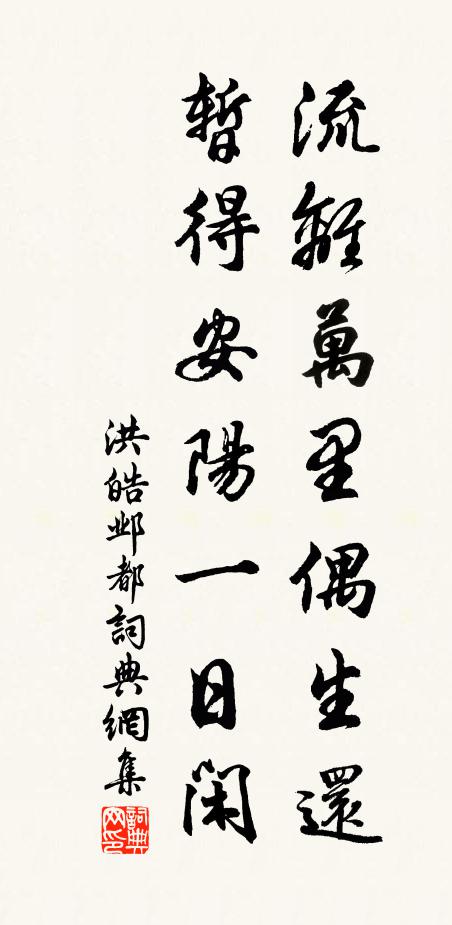 流離萬里偶生還
暫得安陽一日閑
洪皓邺都詞典網集
詞典网印